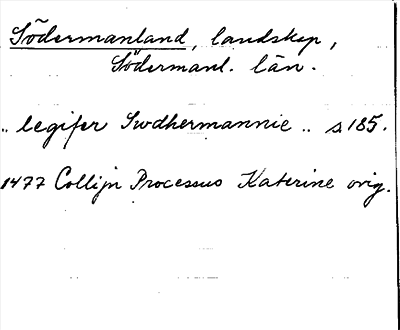 Södermanland, landskap,
Södermanl. län.
.. legifer Swdhermannie .. s 185.
1477 Collijn Processus Katerine orig.